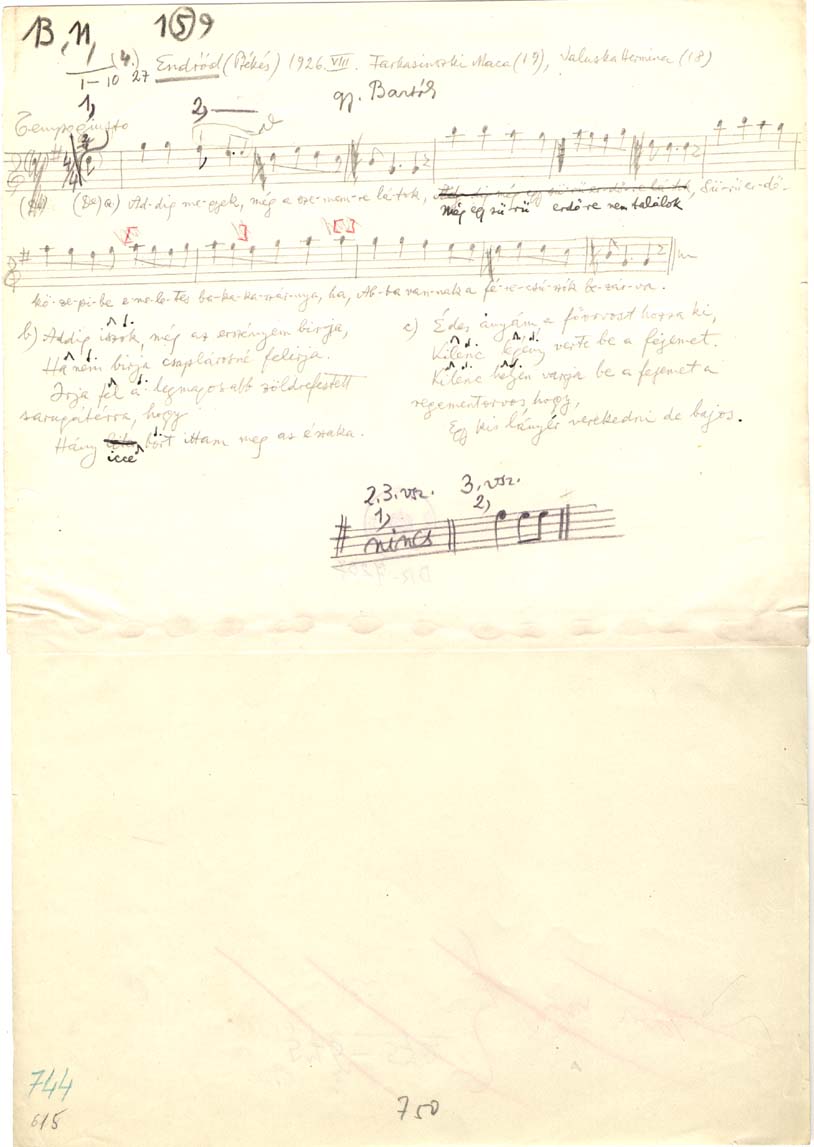 B, II, 1 5 9
(4.) Endrőd (Békés) 1926. VIII. Farkasinszki Maca (19), Valuska Hermina (18)
1–10 27
gy. Bartók
1, 2,
Tempo giusto
(De) a) Ad-dig me-gyek, míg a sze-mem-re látok, Sű-rű er-dő-
Még egy sű-rű erdőre nem találok
kö-ze-pi-be e-me-le-tes ba-ka-ka-szár-nya, ha, Ab-ba van-nak a bezár-va.
b) Addig iszok, míg az erszényem birja,
Ha nem birja csaplárosné felirja.
Irja fel a legmagosabb zöldrefestett
sarugátérra, hogy
Hány bort ittam meg az északa.
icce
c) Édes anyám, a főorvost hozza ki,
Kilenc legény verte be a fejemet.
Kilenc helyen varja be a fejemet a
regementorvos, hogy,
Egy kis lányér verekedni de bajos.
2. 3. vsz. 3. vsz.
1, 2,
nincs
744
615
750